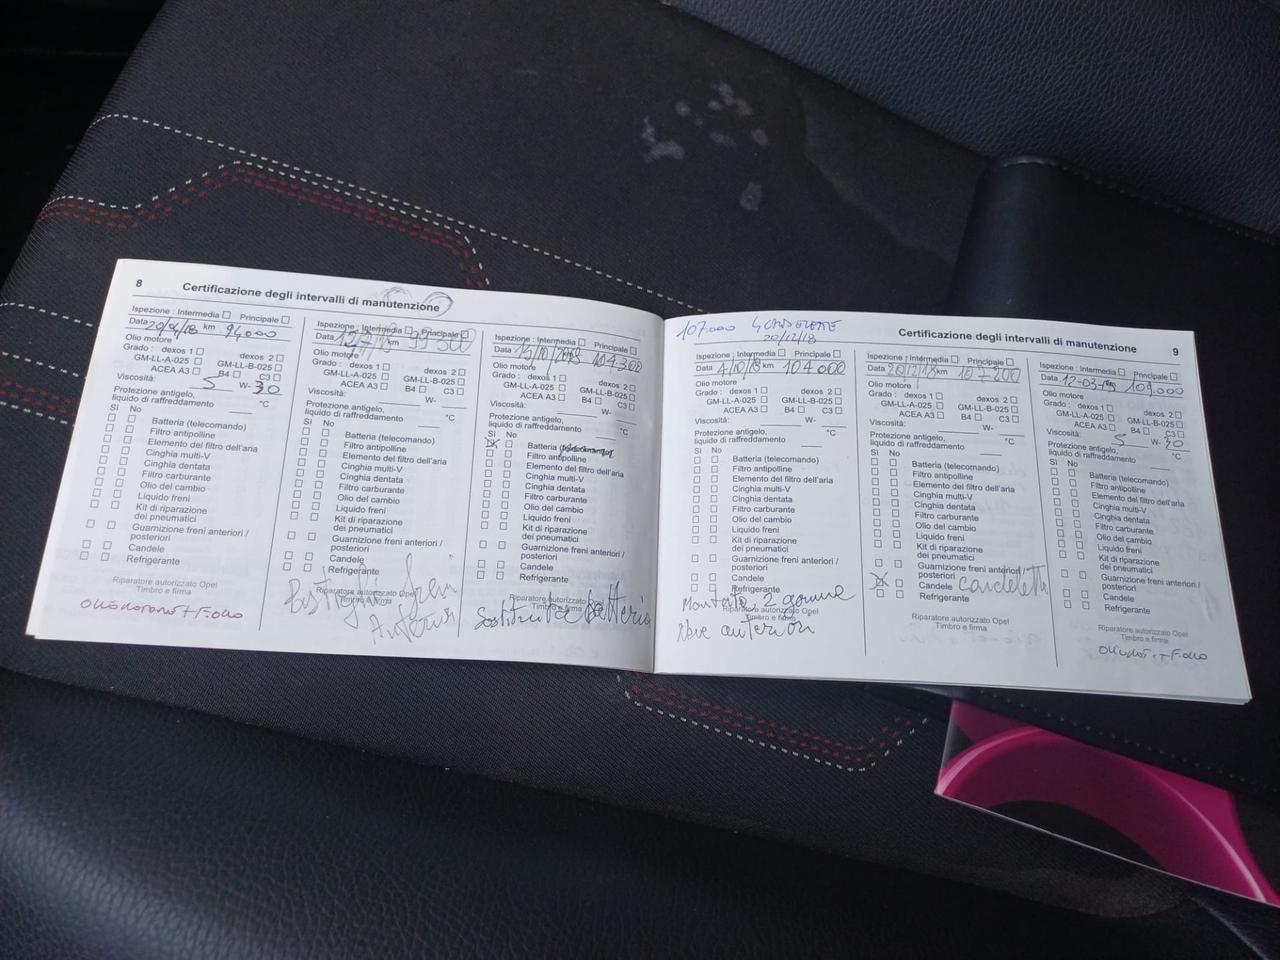 8 Certificazione degli intervalli di manutenzione
Ispezione : Intermedia Principale
Data 20/4/18 km 94,000
Olio motore
Grado : dexos 1 dexos 2
GM-LL-A-025 GM-LL-B-025
ACEA A3 B4 C3
Viscosità: 5 W- 30
Protezione antigelo, °C
liquido di raffreddamento
Sì No
Batteria (telecomando)
Filtro antipolline
Elemento del filtro dell'aria
Cinghia multi-V
Cinghia dentata
Filtro carburante
Olio del cambio
Liquido freni
Kit di riparazione
dei pneumatici
Guarnizione freni anteriori /
posteriori
Candele
Refrigerante
Riparatore autorizzato Opel
Timbro e firma
Olio motore + F.olio
Ispezione : Intermedia Principale
Data km 99 500
Olio motore
Grado : dexos 1 dexos 2
GM-LL-A-025 GM-LL-B-025
ACEA A3 B4 C3
Viscosità: W-
Protezione antigelo, °C
liquido di raffreddamento
Sì No
Batteria (telecomando)
Filtro antipolline
Elemento del filtro dell'aria
Cinghia multi-V
Cinghia dentata
Filtro carburante
Olio del cambio
Liquido freni
Kit di riparazione
dei pneumatici
Guarnizione freni anteriori /
posteriori
Candele
Refrigerante
Riparatore autorizzato Opel
Timbro e firma
Pastiglie freni
Ispezione : Intermedia Principale
Data 15/10/2018 104 300
Olio motore
Grado : dexos 1 dexos 2
GM-LL-A-025 GM-LL-B-025
ACEA A3 B4 C3
Viscosità: W-
Protezione antigelo, °C
liquido di raffreddamento
Sì No
Batteria
Filtro antipolline
Elemento del filtro dell'aria
Cinghia multi-V
Cinghia dentata
Filtro carburante
Olio del cambio
Liquido freni
Kit di riparazione
dei pneumatici
Guarnizione freni anteriori /
posteriori
Candele
Refrigerante
Riparatore autorizzato
Timbro e firma
Sostituita batteria
107.000 4 CANDELETTE
20/12/18
Certificazione degli intervalli di manutenzione 9
Ispezione : Intermedia Principale
Data 4/10/18 km 104 000
Olio motore
Grado : dexos 1 dexos 2
GM-LL-A-025 GM-LL-B-025
ACEA A3 B4 C3
Viscosità: W-
Protezione antigelo, °C
liquido di raffreddamento
Sì No
Batteria (telecomando)
Filtro antipolline
Elemento del filtro dell'aria
Cinghia multi-V
Cinghia dentata
Filtro carburante
Olio del cambio
Liquido freni
Kit di riparazione
dei pneumatici
Guarnizione freni anteriori /
posteriori
Candele
Refrigerante
Riparatore autorizzato Opel
Timbro e firma
Montato 2 gomme
Neve anteriori
Ispezione : Intermedia Principale
Data 20/12/18 km 107 200
Olio motore
Grado : dexos 1 dexos 2
GM-LL-A-025 GM-LL-B-025
ACEA A3 B4 C3
Viscosità: W-
Protezione antigelo, °C
liquido di raffreddamento
Sì No
Batteria (telecomando)
Filtro antipolline
Elemento del filtro dell'aria
Cinghia multi-V
Cinghia dentata
Filtro carburante
Olio del cambio
Liquido freni
Kit di riparazione
dei pneumatici
Guarnizione freni anteriori /
posteriori
Candele Candelette
Refrigerante
Riparatore autorizzato Opel
Timbro e firma
Ispezione : Intermedia Principale
Data 12-03-19 109.000
Olio motore
Grado : dexos 1 dexos 2
GM-LL-A-025 GM-LL-B-025
ACEA A3 B4 C3
Viscosità: 5 W- 30
Protezione antigelo, °C
liquido di raffreddamento
Sì No
Batteria (telecomando)
Filtro antipolline
Elemento del filtro dell'aria
Cinghia multi-V
Cinghia dentata
Filtro carburante
Olio del cambio
Liquido freni
Kit di riparazione
dei pneumatici
Guarnizione freni anteriori /
posteriori
Candele
Refrigerante
Riparatore autorizzato Opel
Timbro e firma
Olio mot. + F.olio